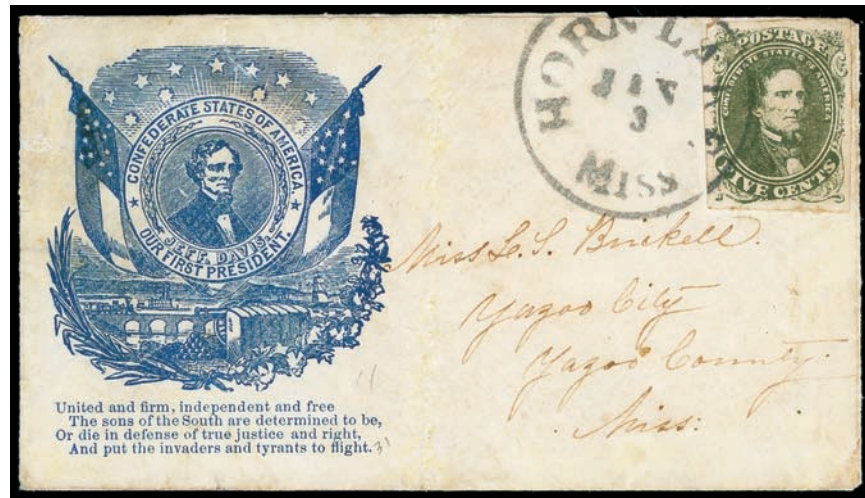 CONFEDERATE STATES OF AMERICA.
JEFF. DAVIS.
OUR FIRST PRESIDENT.
United and firm, independent and free
The sons of the South are determined to be,
Or die in defense of true justice and right,
And put the invaders and tyrants to flight.
HORN LAKE
JAN
3
MISS
POSTAGE
CONFEDERATE STATES OF AMERICA
FIVE CENTS
Miss L. S. Brickell.
Yazoo City
Yazoo County.
Miss:
11
31